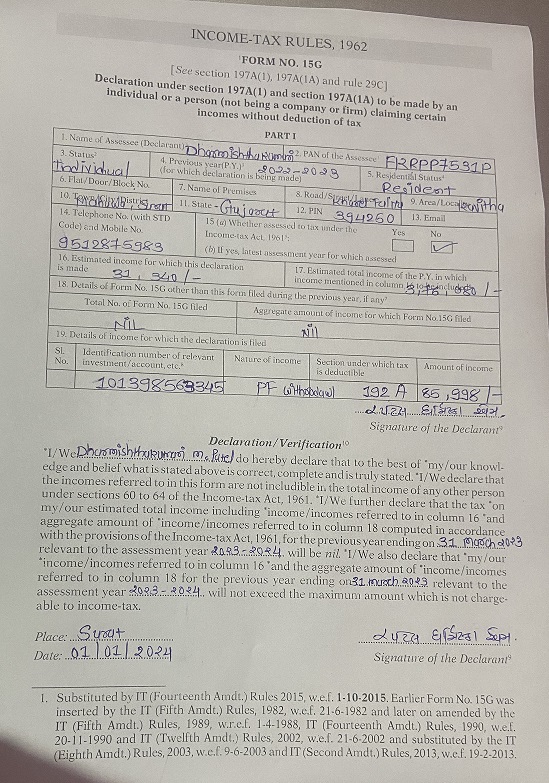 INCOME-TAX RULES, 1962
¹FORM NO. 15G
[See section 197A(1), 197A(1A) and rule 29C]
Declaration under section 197A(1) and section 197A(1A) to be made by an
individual or a person (not being a company or firm) claiming certain
incomes without deduction of tax
PART I
1. Name of Assessee (Declarant) 2. PAN of the Assessee
3. Status² Individual 4. Previous year(P.Y.)³ (for which declaration is being made) 2022-2023 5. Residential Status⁴ Resident
6. Flat/Door/Block No. 7. Name of Premises 8. Road/Street/Lane 9. Area/Locality
10. Town/City/District Surat 11. State - Gujarat 12. PIN 394250 13. Email
14. Telephone No. (with STD Code) and Mobile No. 9512875983
15 (a) Whether assessed to tax under the Income-tax Act, 1961⁵: Yes No ✓
(b) If yes, latest assessment year for which assessed
16. Estimated income for which this declaration is made 31,340/-
17. Estimated total income of the P.Y. in which income mentioned in column 16 to be included⁶
18. Details of Form No. 15G other than this form filed during the previous year, if any⁷
Total No. of Form No. 15G filed Aggregate amount of income for which Form No.15G filed
NIL Nil
19. Details of income for which the declaration is filed
Sl. No. Identification number of relevant investment/account, etc.⁸ Nature of income Section under which tax is deductible Amount of income
PF withdrawl 192 A 85,998/-
Signature of the Declarant⁹
Declaration/Verification¹⁰
*I/We Dharmishthakumari M. Patel do hereby declare that to the best of *my/our knowl-
edge and belief what is stated above is correct, complete and is truly stated. *I/We declare that
the incomes referred to in this form are not includible in the total income of any other person
under sections 60 to 64 of the Income-tax Act, 1961. *I/We further declare that the tax *on
my/our estimated total income including *income/incomes referred to in column 16 *and
aggregate amount of *income/incomes referred to in column 18 computed in accordance
with the provisions of the Income-tax Act, 1961, for the previous year ending on 31 march 2023
relevant to the assessment year 2023-2024 will be nil. *I/We also declare that *my/our
*income/incomes referred to in column 16 *and the aggregate amount of *income/incomes
referred to in column 18 for the previous year ending on 31 march 2023 relevant to the
assessment year 2023-2024 will not exceed the maximum amount which is not charge-
able to income-tax.
Place: Surat
Date: 01/01/2024 Signature of the Declarant⁹
1. Substituted by IT (Fourteenth Amdt.) Rules 2015, w.e.f. 1-10-2015. Earlier Form No. 15G was
inserted by the IT (Fifth Amdt.) Rules, 1982, w.e.f. 21-6-1982 and later on amended by the
IT (Fifth Amdt.) Rules, 1989, w.r.e.f. 1-4-1988, IT (Fourteenth Amdt.) Rules, 1990, w.e.f.
20-11-1990 and IT (Twelfth Amdt.) Rules, 2002, w.e.f. 21-6-2002 and substituted by the IT
(Eighth Amdt.) Rules, 2003, w.e.f. 9-6-2003 and IT (Second Amdt.) Rules, 2013, w.e.f. 19-2-2013.